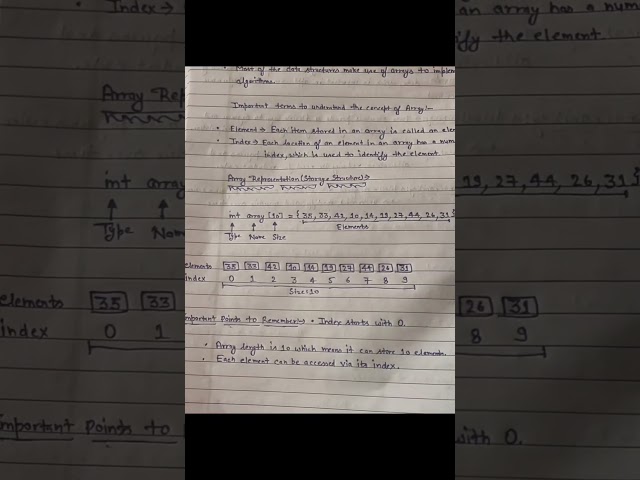 • Most of the data structures make use of arrays to implem
algorithms.
Important terms to understand the concept of Array:-
• Element → Each item stored in an array is called an ele
• Index → Each location of an element in an array has a num
index, which is used to identify the element
Array Representation (Storage Structure) →
int array [10] = { 35, 33, 42, 10, 14, 19, 27, 44, 26, 31 }
Type Name Size Elements
elements 35 33 42 10 14 19 27 44 26 31
index 0 1 2 3 4 5 6 7 8 9
Size=10
Important Points to Remember:- • Index starts with 0.
• Array length is 10 which means it can store 10 elements.
• Each element can be accessed via its index.